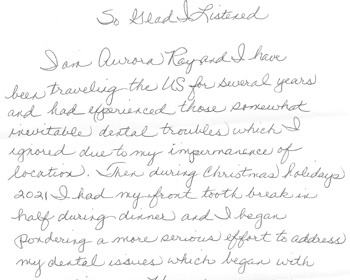 So Glad I Listened
I am Aurora Ray and I have
been traveling the US for several years
and had experienced those somewhat
inevitable dental troubles which I
ignored due to my impermanence of
location. Then during Christmas holidays
2021 I had my front tooth break in
half during dinner and I began
pondering a more serious effort to address
my dental issues which began with